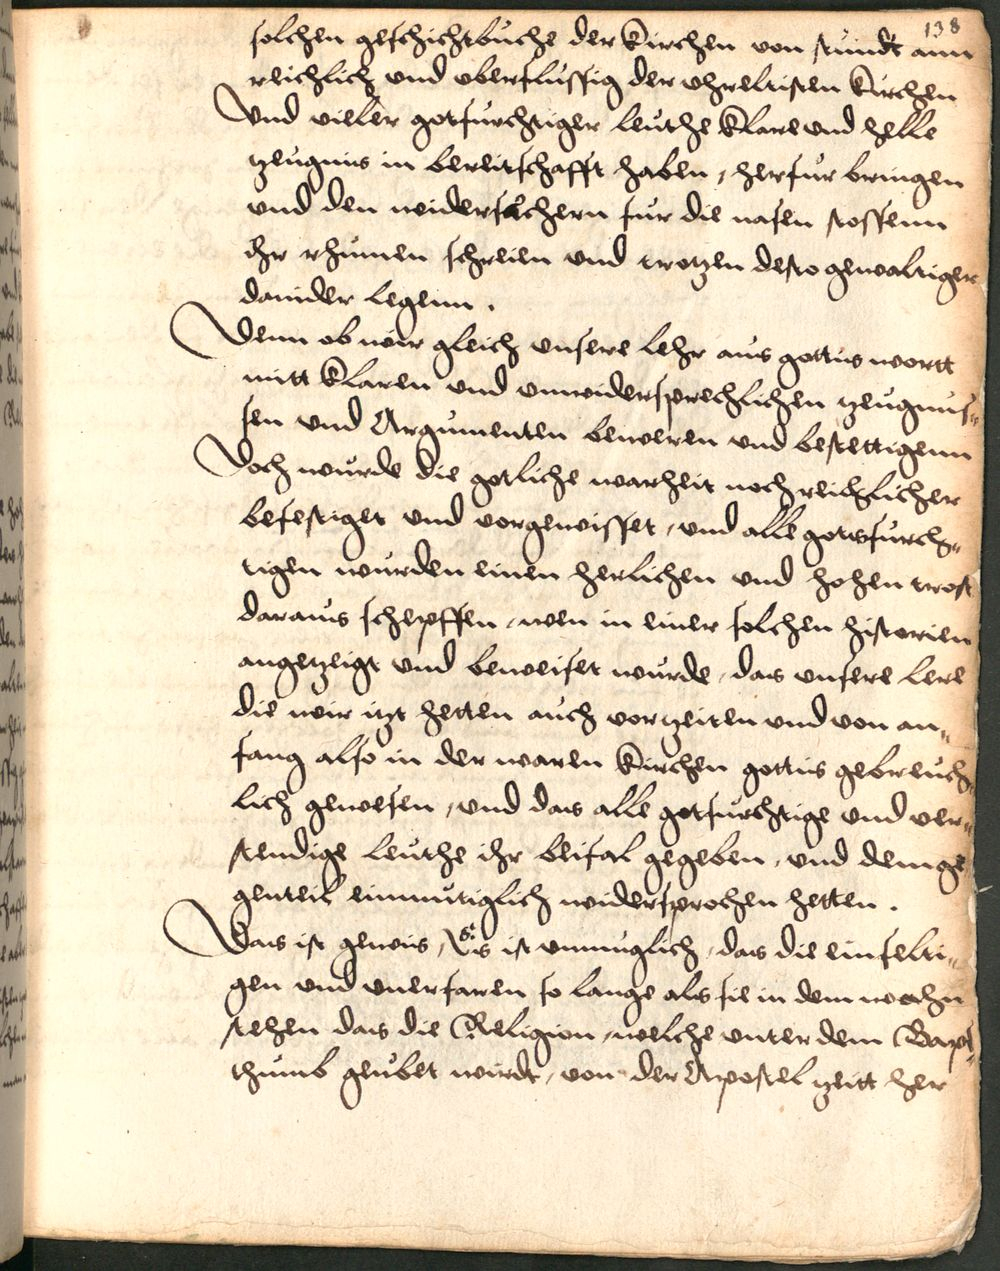 138
solchen geschichtbuche der Kirchen von stundt ann
reichlich und uberflussig der uhreltisten Kirchen
Und vieller gotfurchtiger leuthe klare und helle
tzeugnis in bereitschafft haben, herfur bringen
und den widersachern fur die nasen stossenn
ihr rhumen schreien und trotzen desto gewaltiger
danider legenn.
Denn ob wir gleich unsere lehr aus gottis wortt
mitt klaren und unwidersprechlichen tzeugnus=
sen und Argumenten beweren und bestettigenn
Doch wurde die gotliche warheit noch reichlicher
befestiget und vorgewisset, und alle gotsfurch=
tigen wurden einen herlichen und hohen trost
daraus schepffen, wen in einer solchen historien
angetzeigt und beweiset wurde, das unsere lere
die wir itzt hetten auch vor zeiten und von an=
fang also in der waren Kirchen gottis gebreuch=
lich gewesen, und das alle gotfurchtige und ver=
stendige leuthe ihr beifal gegeben, und dem ge=
genteil einmutiglich widersprochen hetten.
Das ist gewis, Es ist unmuglich, das die einfelti=
gen und unerfaren so lange als sie in dem wohn
stehen das die Religion, welche unter dem Bapst=
thumb geubet wirdt, von der Apostel zeitt her